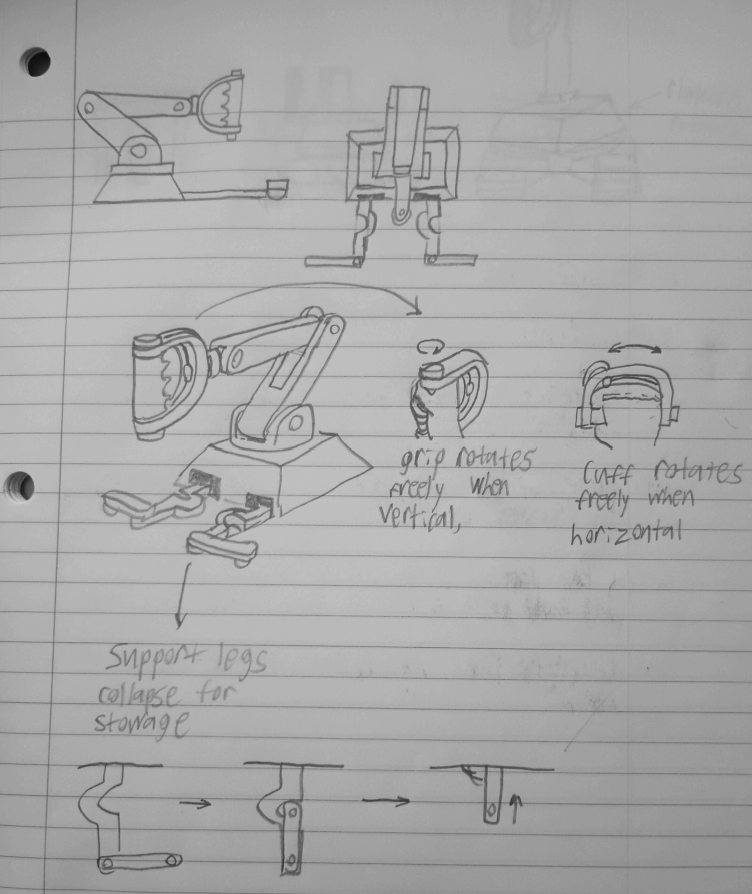 grip rotates
freely when
vertical,
Cuff rotates
freely when
horizontal
Support legs
collapse for
stowage